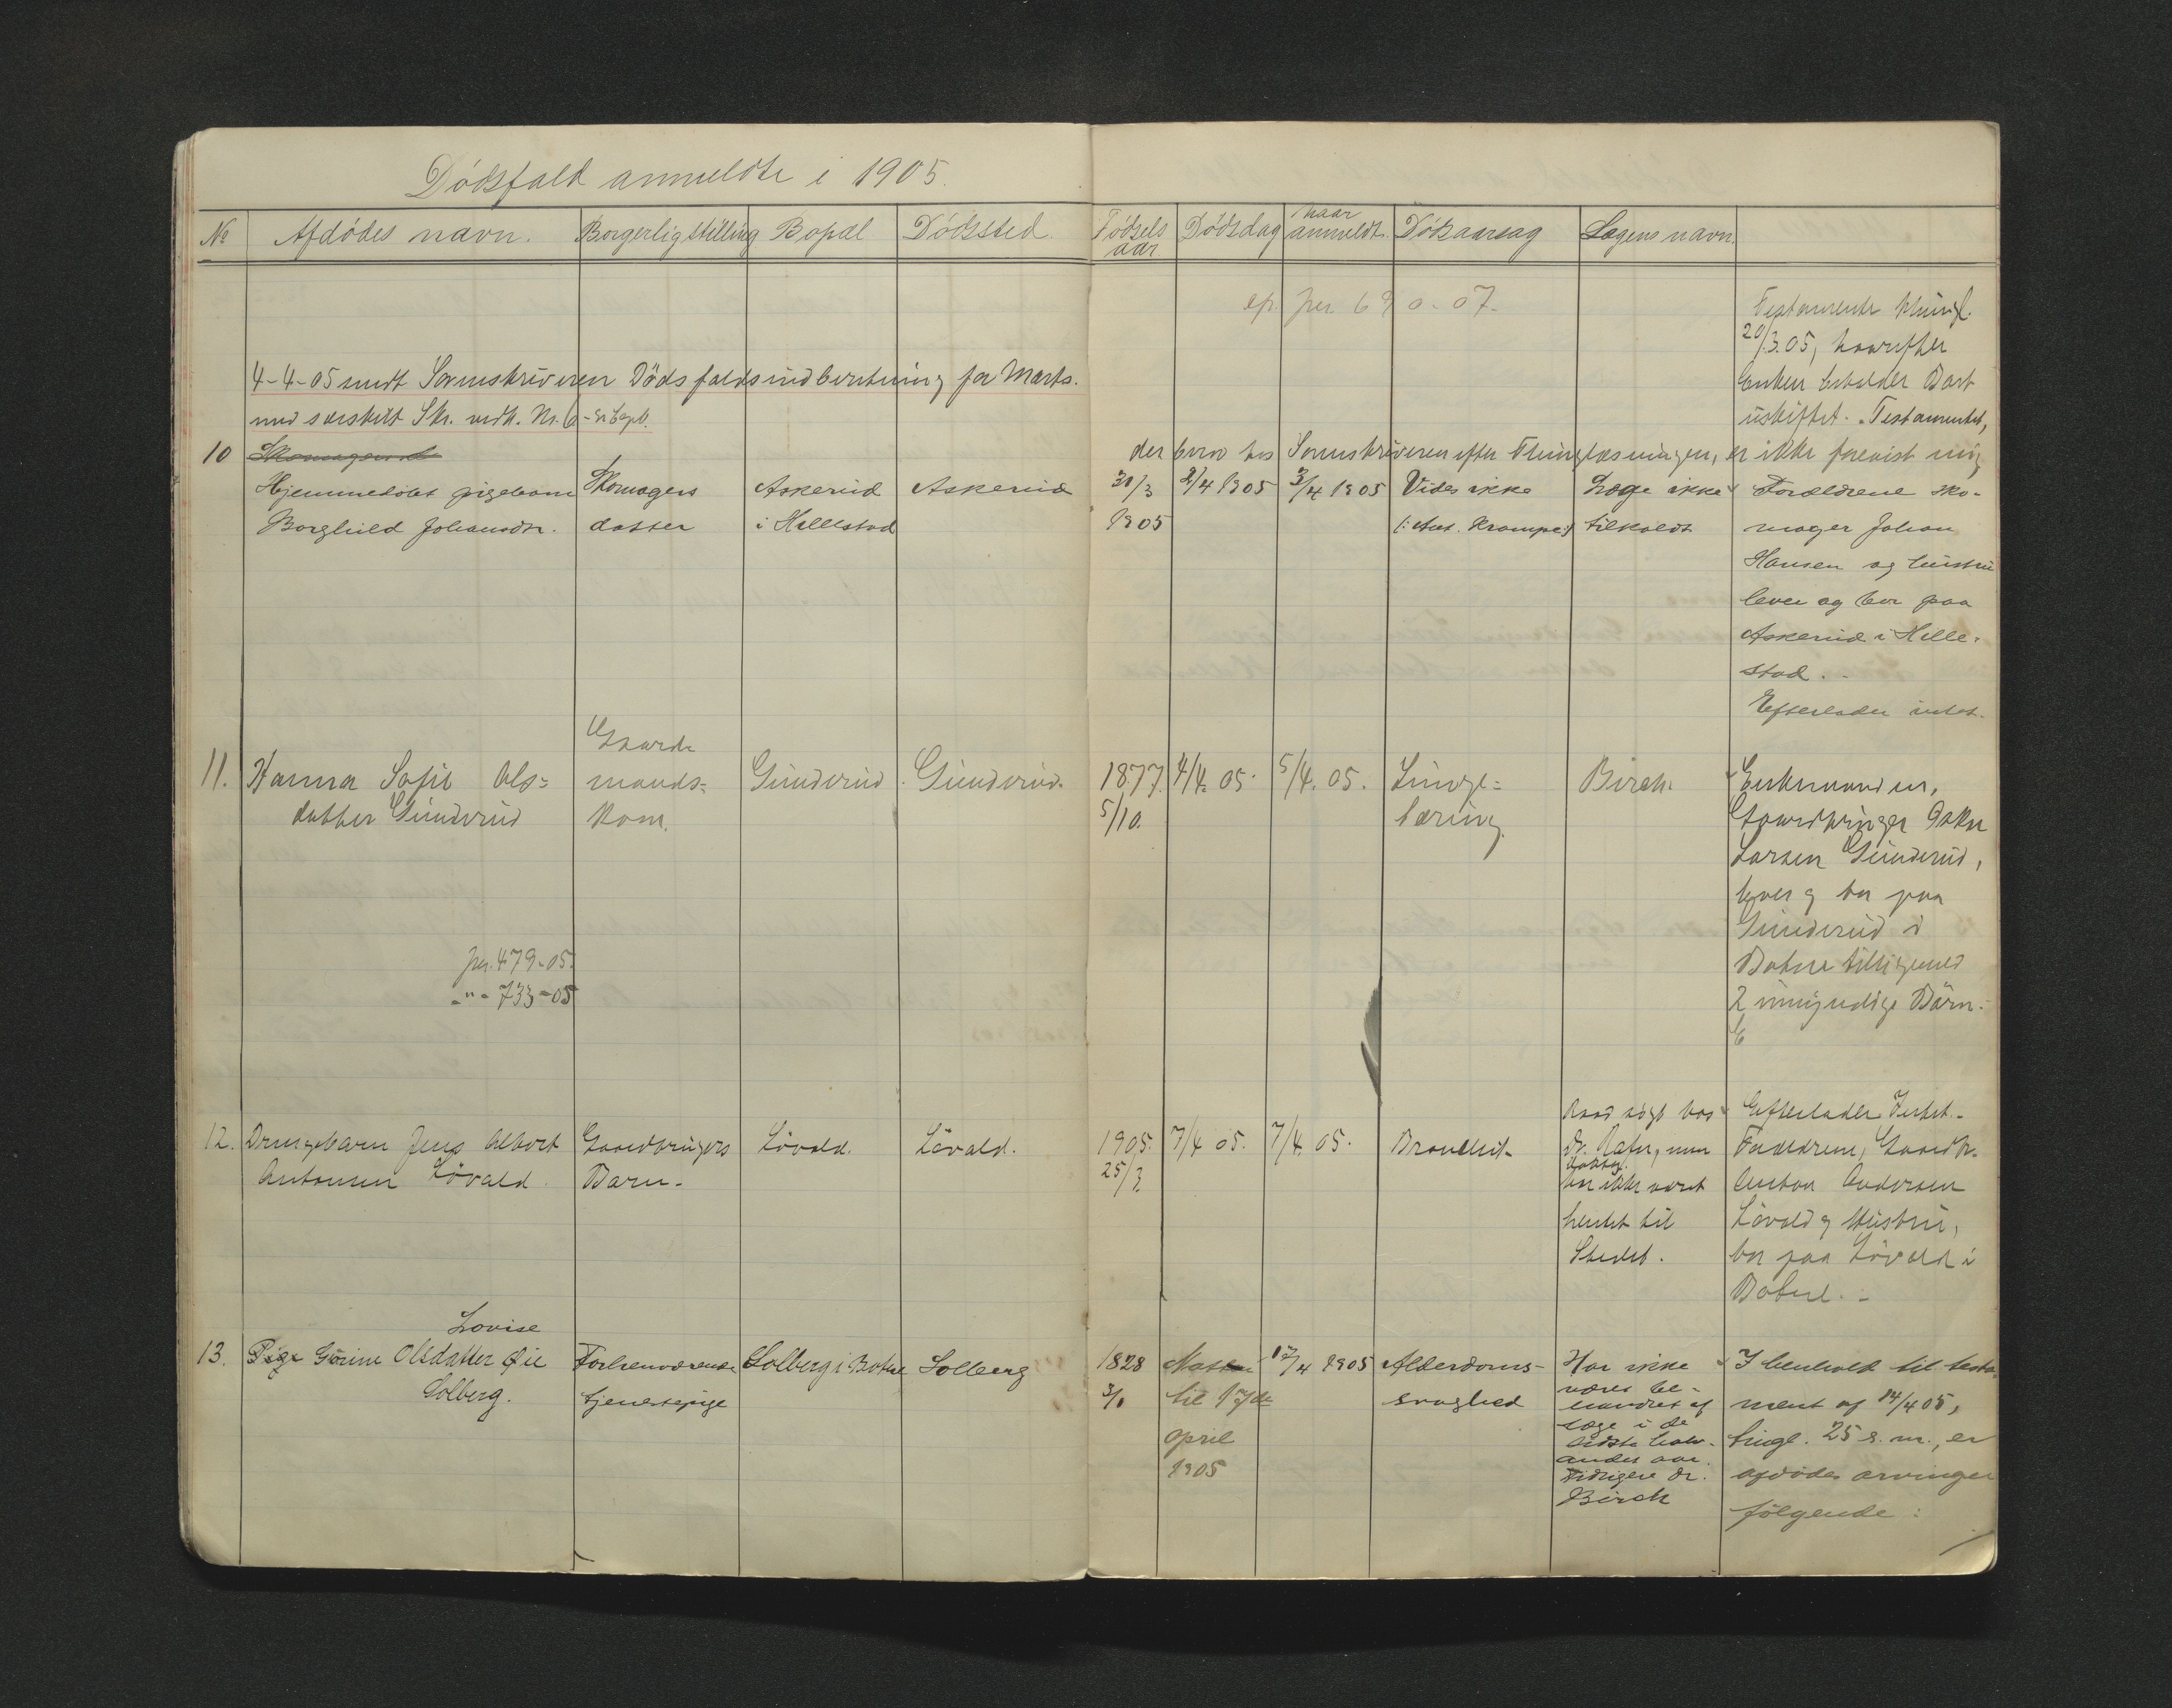 Dödsfald anmeldte i 1905.
№ Afdödes navn. Borgerlig stilling Bopæl Dödssted. Födsels aar. Dödsdag naar anmeldt. Dödsaarsag Lægens navn.
ep. jnr. 690-07.
Testamente thingl.
20/3.05, hvorefter
Enken beholder Boet
uskiftet. Testamentet,
4-4-05 sendt Sorenskriveren Dödsfaldsindberetning for Marts.
med særskilt Skr. vedk. Nr. 6
der bero hos Sorenskriveren efter Thinglæsningen, er ikke forevist mig
10
Hjemmedöbt pigebarn
Borghild Johansdtr.
Skomagers
datter
Askerud
i Hillestad
Askerud
30/3
1905
2/4 1905
3/4 1905
Vides ikke
(: Ant. Krampe :)
Læge ikke
tilkaldt
Forældrene sko-
mager Johan
Hansen og hustru
lever og bor paa
Askerud i Hille-
stad.
Efterlader intet.
11. Hanna Sofie Ols=
datter Gunderud
Gaard-
mands=
kone.
Gunderud
Gunderud.
1877
5/10.
4/4. 05.
5/4. 05.
Lunge=
tæring.
Birch.
Enkemanden,
Gaardbruger
Larsen Gunderud,
lever og bor paa
Gunderud i
Botne tilligemed
2 umyndige Börn.
jnr. 479-05.
-"- 733-05
12. Drengebarn Jens Albert
Antonsen Lövald.
Gaardbrugers
Barn.
Lövald.
Lövald.
1905.
25/3.
7/4 05.
7/4. 05.
Raad sögt hos
Dr. Rafn, men
har ikke været
hentet til
Stedet.
Efterlader Intet.
Forældrene, Gaardbr.
Anton Andersen
Lövald og Hustru,
bor paa Lövald i
Botne.
Lovise
13. Pige Gurine Olsdatter Øie
Solberg.
Forhenværende
tjenestepige
Solberg i Botne
Solberg
1828
3/1
Natten
til 17de
april
1905
17/4 1905
Alderdoms-
svaghed
Har ikke
været be-
handlet af
læge i de
sidste halv-
andet aar.
Tidligere dr.
Birch
I henhold til testa-
ment af 14/4 05,
tingl. 25 s. m., er
afdödes arvinger
fölgende: